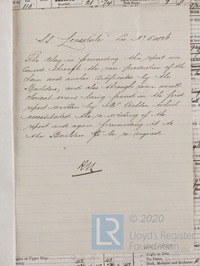 SS "Lonsdale" Lon No
The delay in forwarding this report was
caused through the non production of the
chain and anchor certificates by the
Builders, and also through some small
clerical errors being found in the first
report written by Mr which
necessitated the re-writing of the
report and again forwarding it to
the Builders to be re signed.
© 2020
LR
Lloyd's Register
Foundation